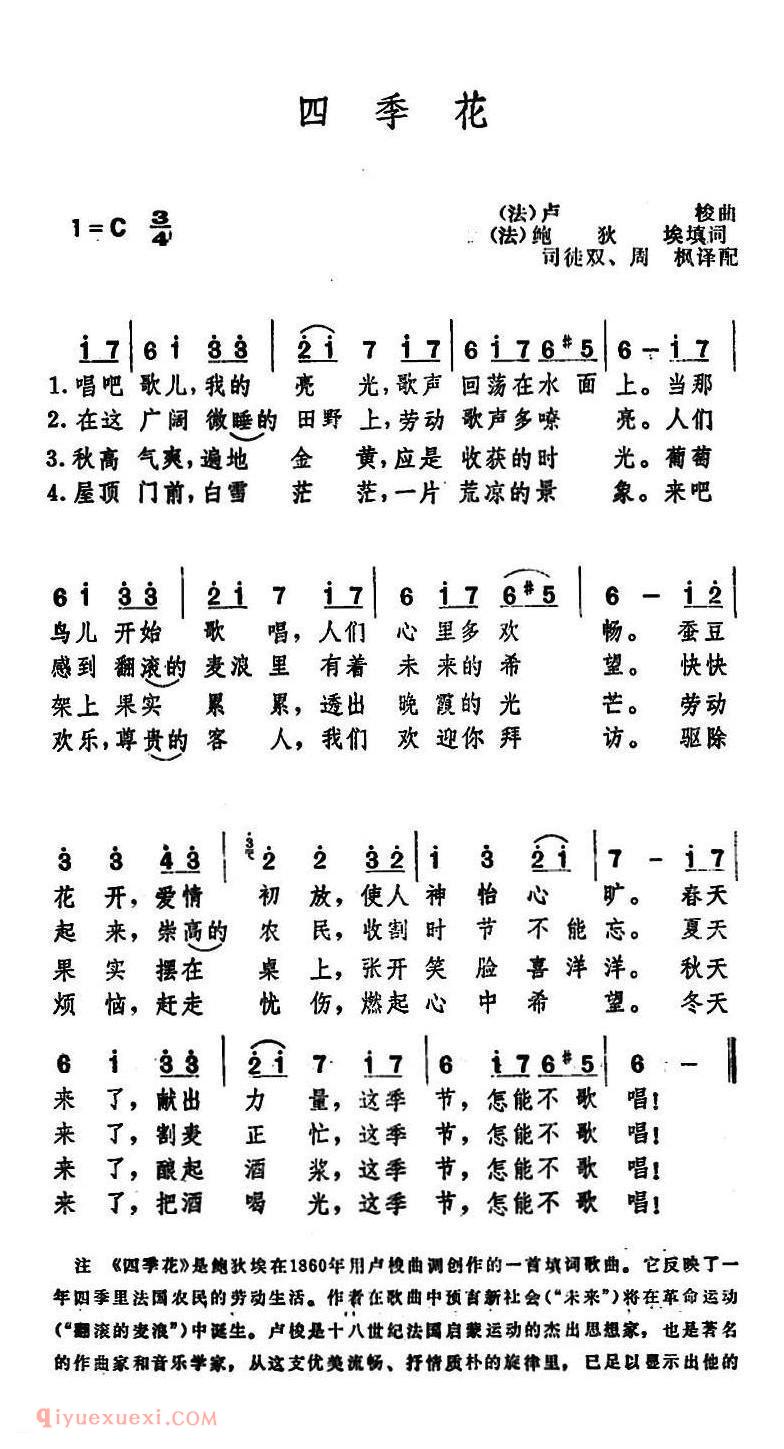 四季花
1=C 3/4
(法)卢 梭曲
(法)鲍 狄 埃填词
司徒双、周 枫译配
i 7 | 6 i 3̇ 3̇ | 2̇ i 7 i 7 | 6 i 7 6 #5 | 6 - i 7 |
1.唱吧 歌儿,我的 亮 光,歌声 回荡在水 面 上。当那
2.在这 广阔 微睡的 田野 上,劳动 歌声多嘹 亮。人们
3.秋高 气爽,遍地 金 黄,应是 收获的时 光。葡萄
4.屋顶 门前,白雪 茫 茫,一片 荒凉的景 象。来吧
6 i 3̇ 3̇ | 2̇ i 7 i 7 | 6 i 7 6 #5 | 6 - i 2̇ |
鸟儿 开始 歌 唱,人们 心 里多 欢 畅。蚕豆
感到 翻滚的 麦浪 里 有着 未 来的 希 望。快快
架上 果实 累 累,透出 晚 霞的 光 芒。劳动
欢乐,尊贵的 客 人,我们 欢 迎你 拜 访。驱除
3̇ 3̇ 4̇ 3̇ | 3̇ 2̇ 2̇ 3̇ 2̇ | i 3̇ 2̇ i | 7 - i 7 |
花 开,爱情 初 放,使人 神 怡 心 旷。春天
起 来,崇高的 农 民,收割 时 节 不 能 忘。夏天
果 实 摆在 桌 上,张开 笑 脸 喜 洋 洋。秋天
烦 恼,赶走 忧 伤,燃起 心 中 希 望。冬天
6 i 3̇ 3̇ | 2̇ i 7 i 7 | 6 i 7 6 #5 | 6 - ‖
来 了,献出 力 量,这季 节,怎能不 歌 唱!
来 了,割麦 正 忙,这季 节,怎能不 歌 唱!
来 了,酿起 酒 浆,这季 节,怎能不 歌 唱!
来 了,把酒 喝 光,这季 节,怎能不 歌 唱!
注 《四季花》是鲍狄埃在1860年用卢梭曲调创作的一首填词歌曲。它反映了一
年四季里法国农民的劳动生活。作者在歌曲中预言新社会(“未来”)将在革命运动
(“翻滚的麦浪”)中诞生。卢梭是十八世纪法国启蒙运动的杰出思想家,也是著名
的作曲家和音乐学家,从这支优美流畅、抒情质朴的旋律里,已足以显示出他的
qiyuexuexi.com